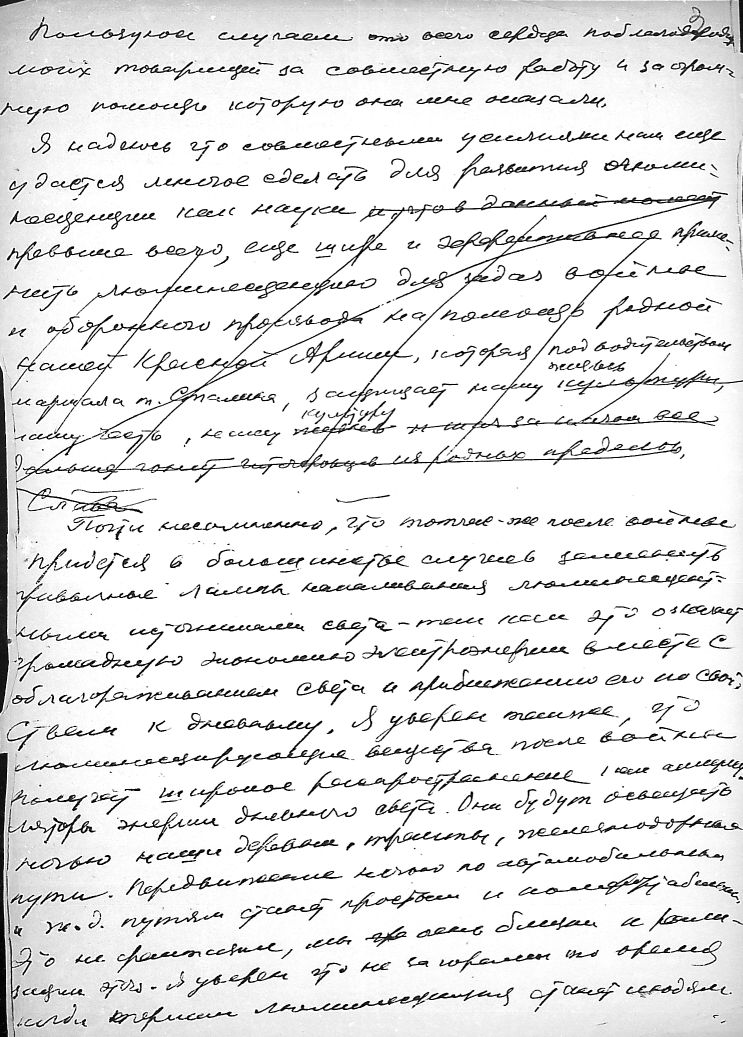 Пользуюсь случаем ото всего сердца поблагодарить
моих товарищей за совместную работу и за огром-
ную помощь которую они мне оказали.
Я надеюсь что совместными усилиями нам еще
удастся многое сделать для развития люми-
несценции как науки и что в данный момент
превыше всего, еще шире и эффективнее приме-
нить люминесценцию для задач войны
и оборонного производства на помощь родной
нашей Красной Армии, которая под водительством
жизнь
маршала т. Сталина, защищает нашу культуру,
нашу честь, нашу жизнь и шаг за шагом все
культуру
дальше гонит гитлеровцев из родных пределов.
Слава
Почти несомненно, что тотчас-же после войны
придется в большинстве случаев заменить
привычные лампы накаливания люминесцент-
ными источниками света - так как это означает
громадную экономию электроэнергии вместе с
облагораживанием света и приближению его по свой-
ствам к дневному. Я уверен также, что
люминесцирующие вещества после войны
получат широкое распространение как аккуму-
ляторы энергии дневного света. Они будут освещать
ночью наши деревни, тракты, железнодорожные
пути. Передвижение ночью по автомобильным
и ж.д. путям станет простым и комфортабельным.
Это не фантазии, мы очень близки к реали-
зации этого. Я уверен что не за горами то время
когда термин люминесценция станет людям